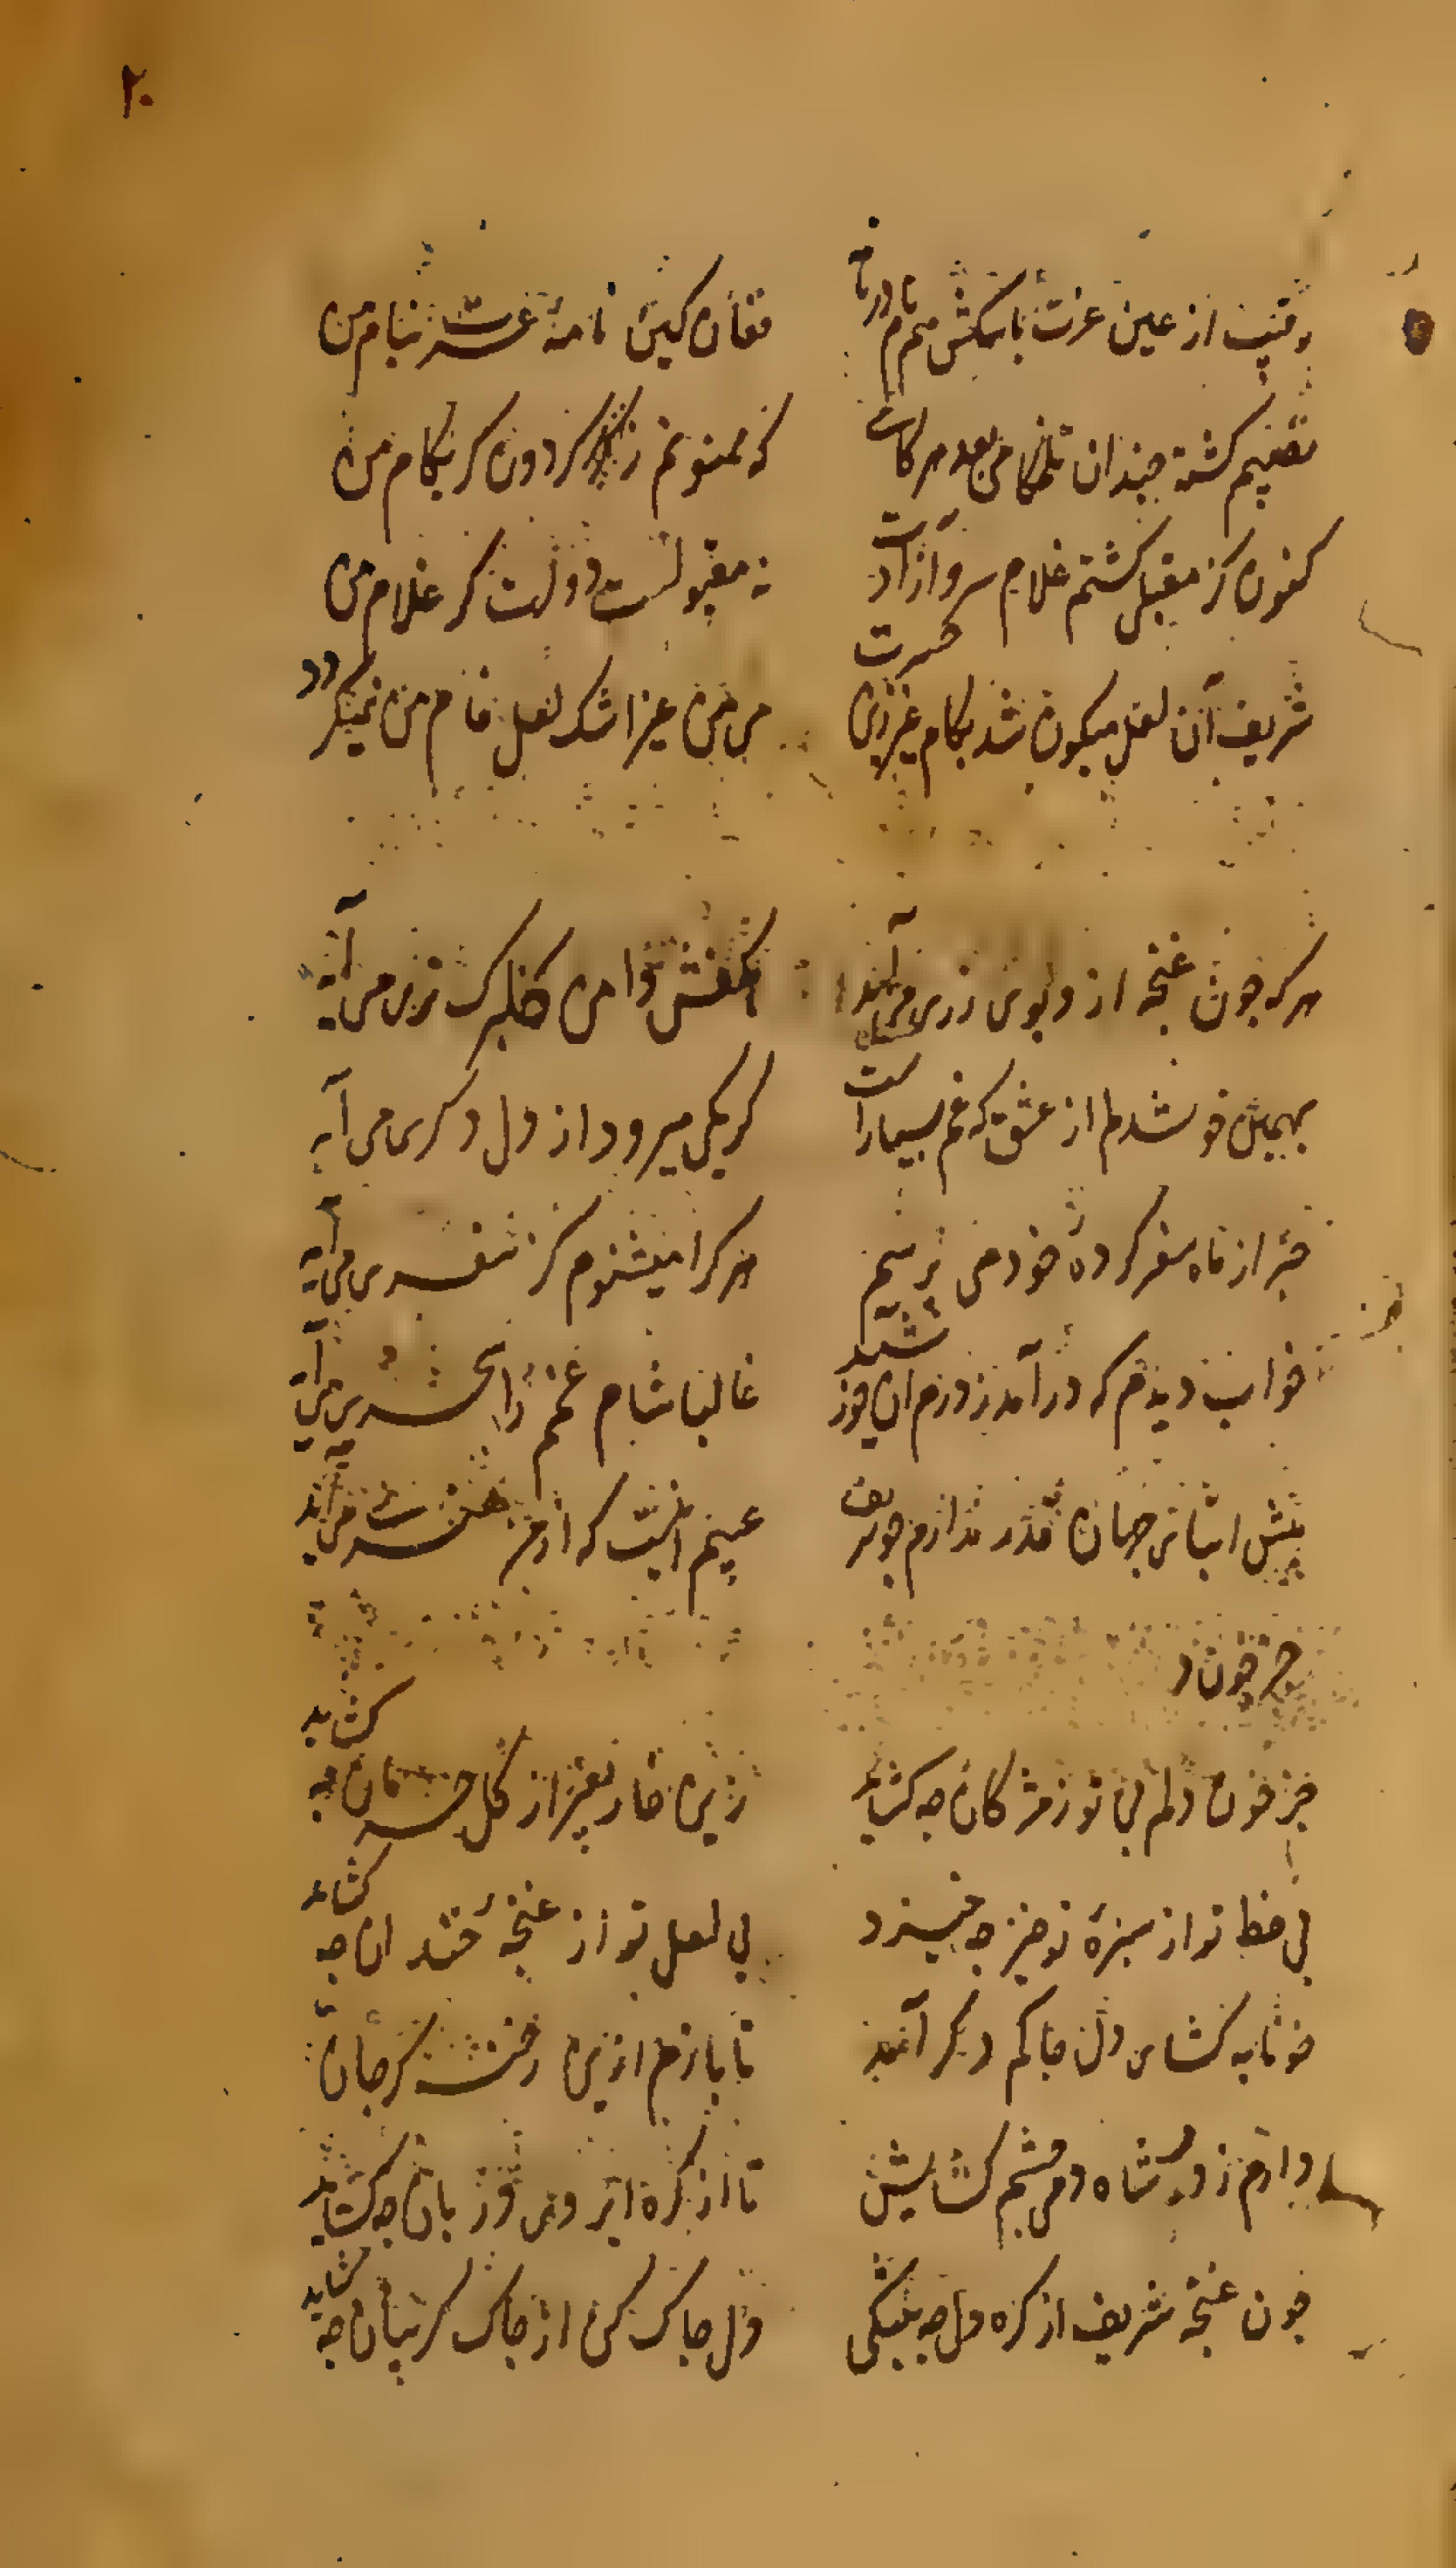 ۲۰
رقیب از عین عزت با سکش محرم
فغان کین نامهٔ عسرت بنام من
نصیبم کشته چندان تلخکامی بعد مرکات
که ممنونم ز کردون کر بکام من
کنون کز مقبل کشتم غلام سرو آزادت
نه مقبولست دولت کر غلام من
شریف آن لعل میکون شد بکام غیر زین حسرت
می من غیر اشک لعل فام من نمیکردد
هر که چون غنچه از و بوی زری می آید
کفش دامن کلبرک تری می آید
بهمین خوشدلم از عشق که غم بسیارست
کر یکی میرود از دل دکری می آید
خبر از ماه سفر کرده خود می پرسم
هر کرا میشنوم کز سفری می آید
خواب دیدم که در آمد ز درم ان خورشید
غالبا شام غمم را سحری می آید
پیش ابنای جهان قدر ندارم چو شریف
عیبم اینست که از من هنری می آید
جز خون د
جز خون دلم بی تو ز مژکان چه کشاید
زین خار بغیر از کل حرمان چه کشاید
بی خط تو از سبزهٔ نوخیز چه خیزد
بی لعل تو از غنچهٔ خندان چه کشاید
خونابه کشای دل چاکم دکر آمد
تا بازم ازین رخنه کر جان
دارم ز دو شاه و می چشم کشایش
تا از کره ابرو و زبان چه کشاید
چون غنچه شریف از کره دل چه بتنکی
دل چاک کن از چاک کریبان چه کشاید